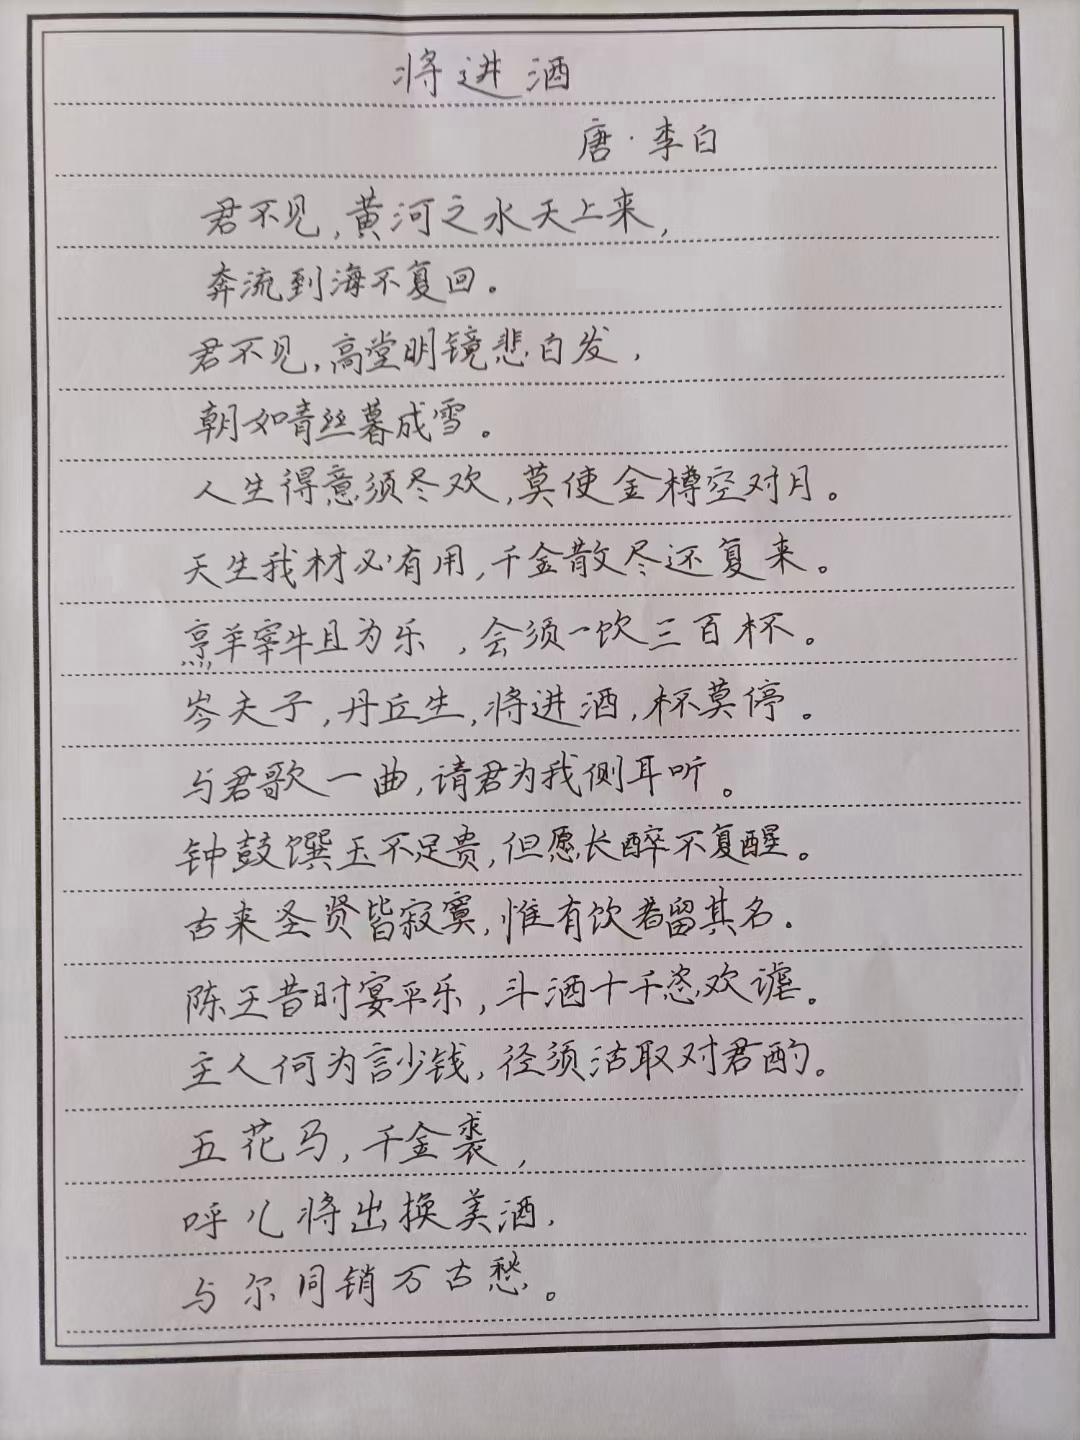 将进酒
唐·李白
君不见,黄河之水天上来,
奔流到海不复回。
君不见,高堂明镜悲白发,
朝如青丝暮成雪。
人生得意须尽欢,莫使金樽空对月。
天生我材必有用,千金散尽还复来。
烹羊宰牛且为乐,会须一饮三百杯。
岑夫子,丹丘生,将进酒,杯莫停。
与君歌一曲,请君为我侧耳听。
钟鼓馔玉不足贵,但愿长醉不复醒。
古来圣贤皆寂寞,惟有饮者留其名。
陈王昔时宴平乐,斗酒十千恣欢谑。
主人何为言少钱,径须沽取对君酌。
五花马,千金裘,
呼儿将出换美酒,
与尔同销万古愁。